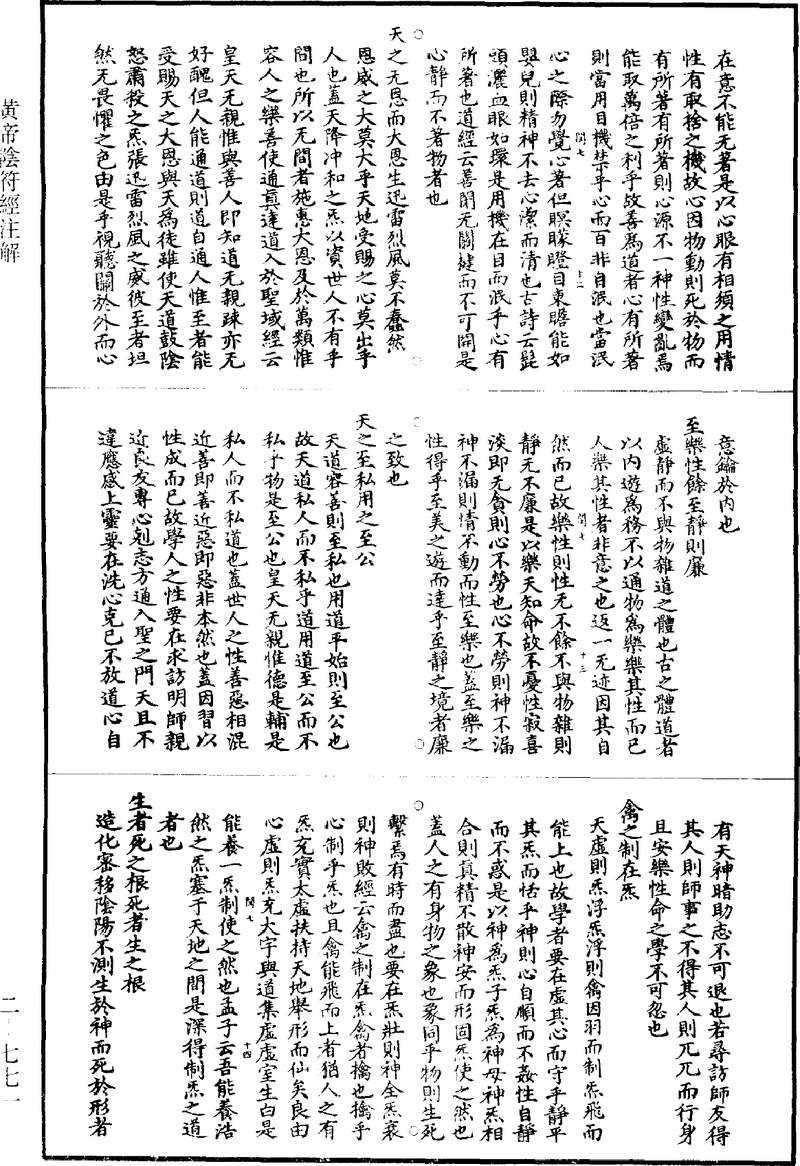 黃帝陰符經注解
在意不能无著是以心眼有相須之用情
性有取捨之機故心因物動則死於物而
有所著有所著則心源不一神性變亂焉
能取萬倍之利乎故善為道者心有所著
則當用目機禁乎心而百非自泯也當泯
閏七
十二
心之際勿覺心著但瞑睩瞪目東瞻能如
嬰兒則精神不去心潔而清也古詩云髭
頭灑血眼如環是用機在目而泯乎心有
所著也道經云善閉无關揵而不可開是
心靜而不著物者也
天之无恩而大恩生迅雷烈風莫不蠢然
恩威之大莫大乎天地受賜之心莫出乎
人也蓋天降冲和之炁以資世人不有乎
間也所以无間者施惠大恩及於萬類惟
容人之樂善使通真達道入於聖域經云
皇天无親惟與善人即知道无親踈亦无
好醜但人能通道則道自通人惟至者能
受賜天之大恩與天為徒雖使天道鼓陰
怒肅殺之炁張迅雷烈風之威彼至者坦
然无畏懼之色由是乎視聽關於外而心
意鑰於內也
至樂性餘至靜則廉
虛靜而不與物雜道之體也古之體道者
以內遊為務不以通物為樂樂其性而已
人樂其性者非意之也返一无迹因其自
閏七
十三
然而已故樂性則性无不餘不與物雜則
靜无不廉是以樂天知命故不憂性寂喜
淡即无貪則心不勞也心不勞則神不漏
神不漏則情不動而性至樂也蓋至樂之
性得乎至美之遊而達乎至靜之境者廉
之致也
天之至私用之至公
天道容善則至私也用道平始則至公也
故天道私人而不私乎道用道至公而不
私乎物是至公也皇天无親惟德是輔是
私人而不私道也蓋世人之性善惡相混
近善即善近惡即惡非本然也蓋因習以
性成而已故學人之性要在求訪明師親
近良友專心剋志方通入聖之門天且不
違應感上靈要在洗心克已不放道心自
有天神暗助志不可退也若尋訪師友得
其人則師事之不得其人則兀兀而行身
且安樂性命之學不可忽也
禽之制在炁
天虛則炁浮炁浮則禽因羽而制炁飛而
能上也故學者要在虛其心而守乎靜平
其炁而恬乎神則心自順而不姦性自靜
而不惑是以神為炁子炁為神母神炁相
合則真精不散神安而形固炁使之然也
蓋人之有身物之象也象同乎物則生死
繫焉有時而盡也要在炁壯則神全炁衰
則神敗經云禽之制在炁禽者擒也擒乎
心制乎炁也且禽能飛而上者猶人之有
炁充實太虛扶持天地舉形而仙矣良由
心虛則炁充大宇與道集虛虛室生白是
閏七
十四
能養一炁制使之然也孟子云吾能養浩
然之炁塞于天地之間是深得制炁之道
者也
生者死之根死者生之根
造化密移陰陽不測生於神而死於形者
二·七七一